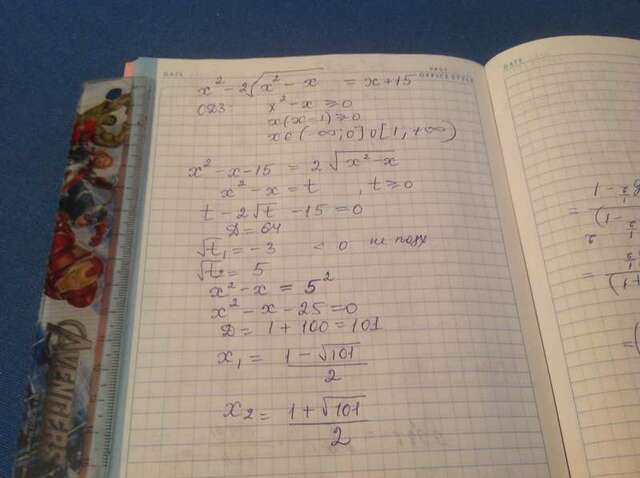 DATE
OFFICE STYLE
x² - 2√(x² - x) = x + 15
ОДЗ: x² - x ≥ 0
x(x - 1) ≥ 0
x ∈ (-∞; 0] ∪ [1, +∞)
x² - x - 15 = 2√(x² - x)
x² - x = t , t ≥ 0
t - 2√t - 15 = 0
D = 64
√t₁ = -3 < 0 не подх
√t₂ = 5
x² - x = 5²
x² - x - 25 = 0
D = 1 + 100 = 101
x₁ = (1 - √101)/2
x₂ = (1 + √101)/2
AVENGERS
DATE